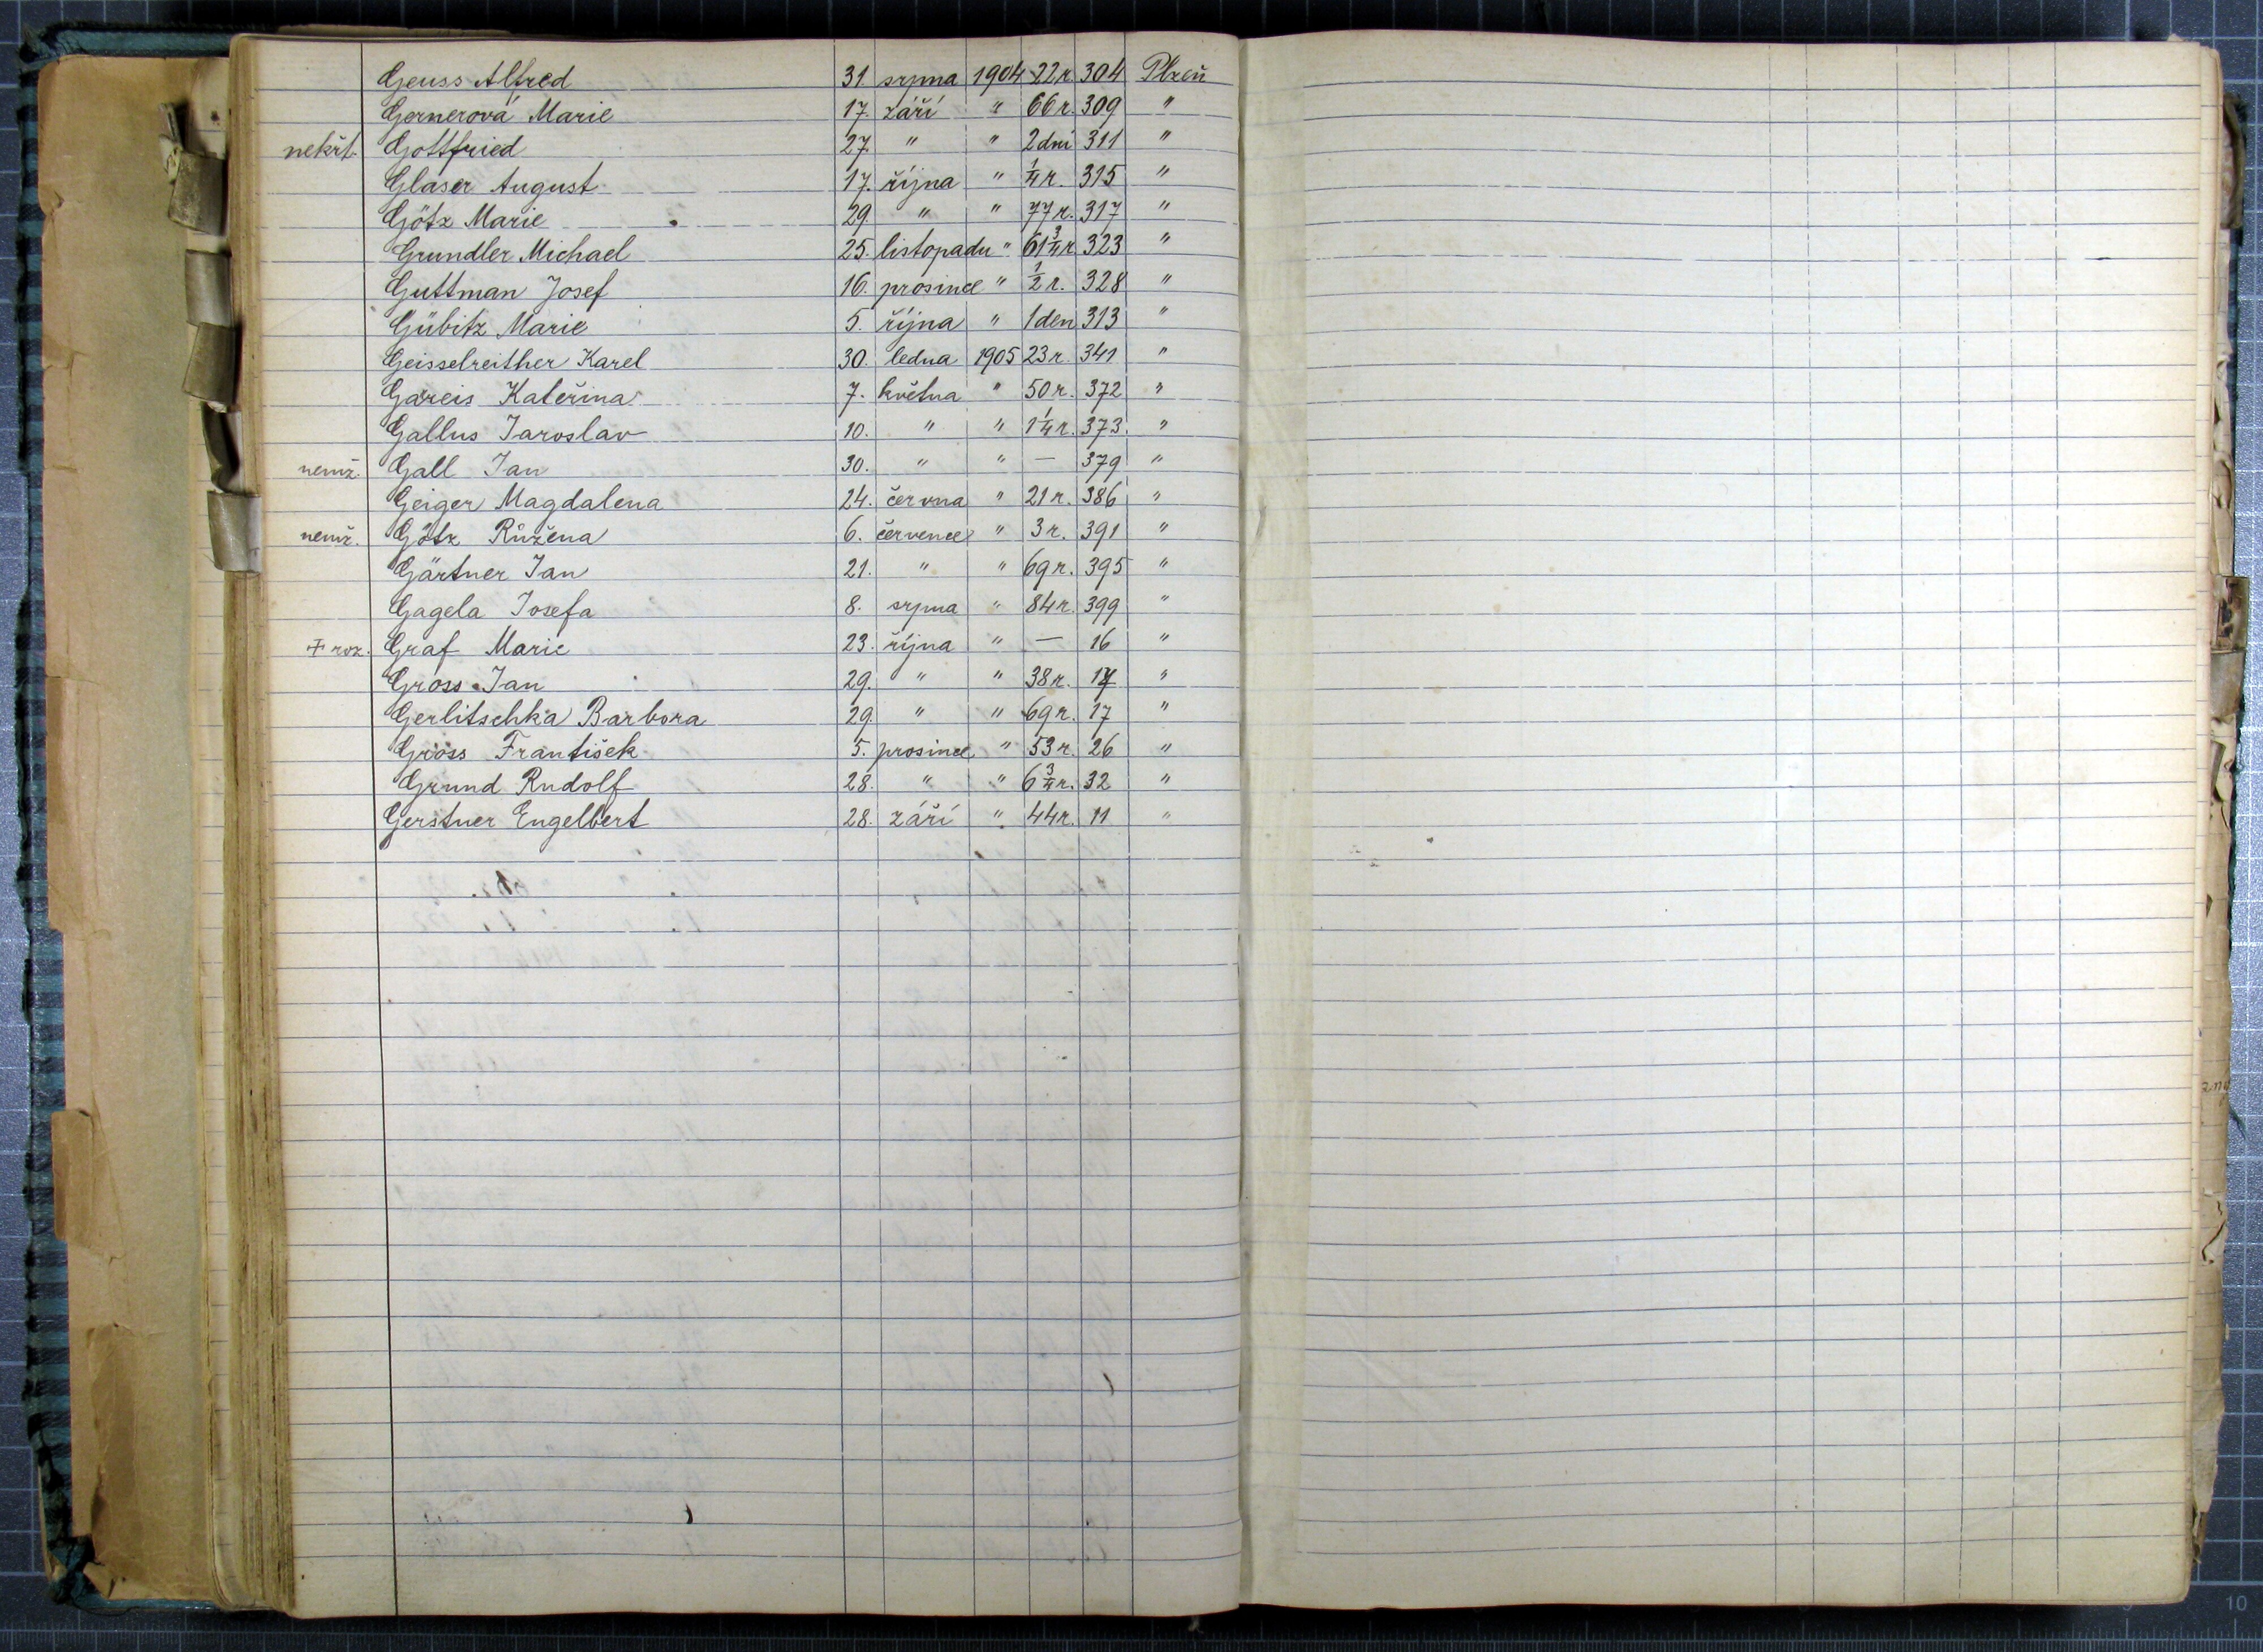 Geuss Alfred 31 srpna 1904 22 r. 304 Plzeň
Gernerová Marie 17. září " 66 r. 309 "
nekřt. Gottfried 27. " " 2 dni 311 "
Glaser August 17. října " 1/4 r. 315 "
Götz Marie 29. " " 77 r. 317 "
Grundler Michael 25. listopadu " 61 3/4 r. 323 "
Guttman Josef 16. prosince " 1/2 r. 328 "
Gübitz Marie 5. října " 1 den 313 "
Geisselreither Karel 30. ledna 1905 23 r. 341 "
Gareis Kateřina 7. května " 50 r. 372 "
Gallus Jaroslav 10. " " 1 1/4 r. 373. "
Gall Jan 30. " " — 379 "
Geiger Magdalena 24. června " 21 r. 386 "
Götz Růžena 6. července " 3 r. 391 "
Gärtner Jan 21. " " 69 r. 395 "
Gagela Josefa 8. srpna " 84 r. 399 "
Graf Marie 23. října " — 16 "
Gross Jan 29. " " 38 r. "
Gerlitschka Barbora 29. " " 69 r. 17 "
Gross František 5. prosince " 53 r. 26 "
Grund Rudolf 28. " " 6 3/4 r. 32 "
Gerstner Engelbert 28. září " 44 r. 11 "
10